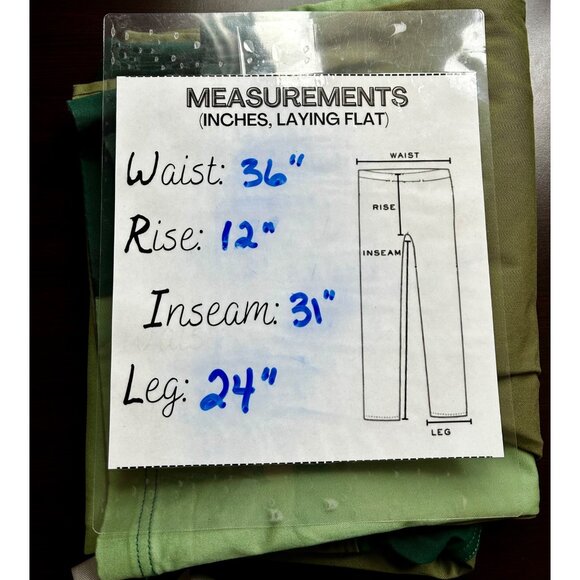 MEASUREMENTS
(INCHES, LAYING FLAT)
Waist: 36"
Rise: 12"
Inseam: 31"
Leg: 24"
WAIST
RISE
INSEAM
LEG